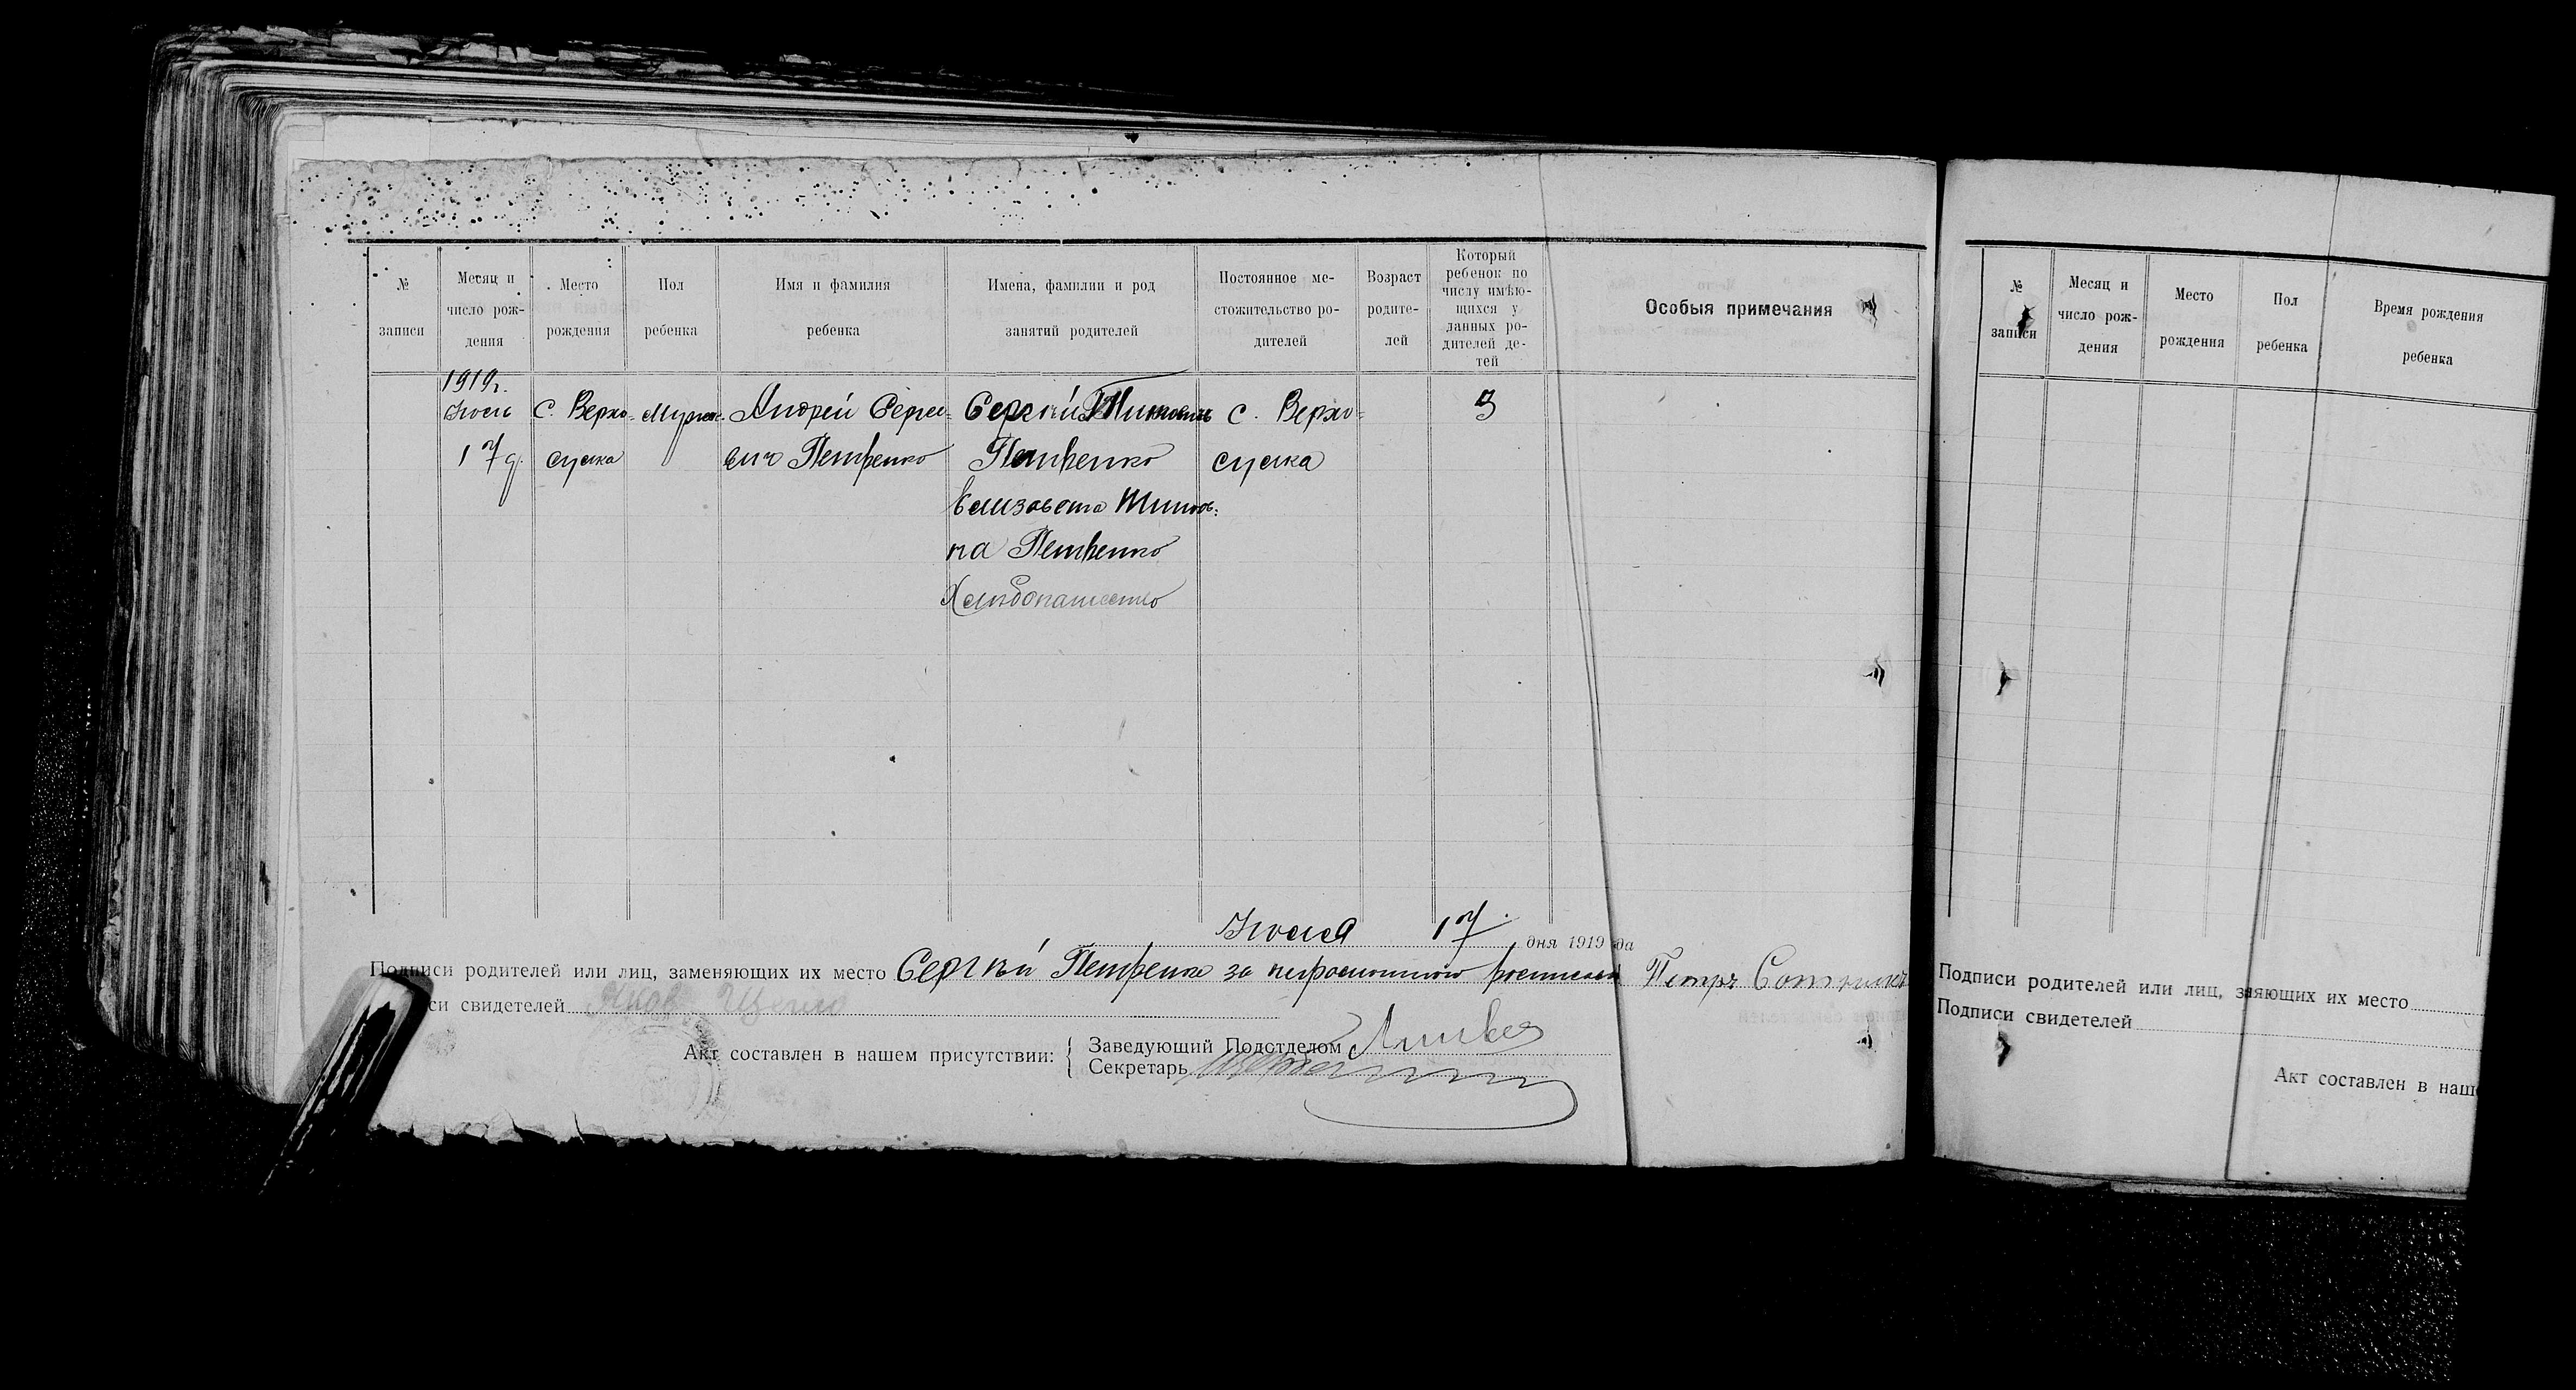 № записи
Месяц и число рождения
Место рождения
Пол ребенка
Имя и фамилия ребенка
Имена, фамилии и род занятий родителей
Постоянное местожительство родителей
Возраст родителей
Который ребенок по числу имѣющихся у данных родителей детей
Особыя примечания
1919г.
Июль
17 д.
С. Верхо-
сулка
Мужск.
Андрей Сергее-
вич Петренко
Сергѣй
Петренко
Елизавета Титов-
на Петренко
Хлѣбопашество
С. Верхо-
сулка
3
Июля 17 дня 1919 да
Подписи родителей или лиц, заменяющих их место Сергѣй Петренко за Петръ
си свидетелей
Акт составлен в нашем присутствии:
Заведующий Подотделом
Секретарь
№ записи
Месяц и число рождения
Место рождения
Пол ребенка
Время рождения ребенка
Подписи родителей или лиц, за яющих их место
Подписи свидетелей
Акт составлен в наш